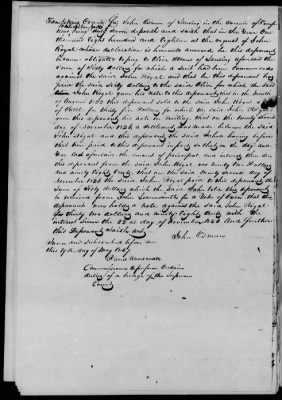 Tompkins County ss John Osmun of Lansing in the County of Tomp
kins being duly sworn deposeth and saith that in the Year One
thousand Eight hundred and Eighteen at the request of John
Royal whose declaration is hereunto annexed he this deponent
became obligated to pay to Oliver of Lansing aforesaid the
Sum of Sixty dollars for which a suit had been commenced
against the said John Royal and that he this deponent has
paid the said Sixty dollars to the said Oliver for which the said
John Royal gave his note to this deponent in the month
of August this deponent sold to the said John Royal a
for thirty five dollars for which the said John Royal
gave this deponent his note in writing that on the twenty second
day of November 1820 a settlement was made between the said
John Royal and this deponent the said John having before
that time paid to this deponent in part so that on the day and
Year last aforesaid the amount of principal and interest then due
this deponent from the said John Royal was ninety two Dollars
and ninety Eight Cents that on the said twenty second day of
November 1820 the said John Royal paid to this deponent the
Sum of Sixty dollars which the said John told this deponent
he received from John for a Yoke of Oxen that this
deponent now holds a note against the said John Royal
for thirty two dollars and ninety Eight Cents with the
interest since the 22d of November 1820 And further
this Deponent saith not
John Osmun
Sworn and Subscribed before me
this 19th day of May 1821
David Woodcock
Commissioner to perform Certain
duties of a Judge of the Supreme
Court